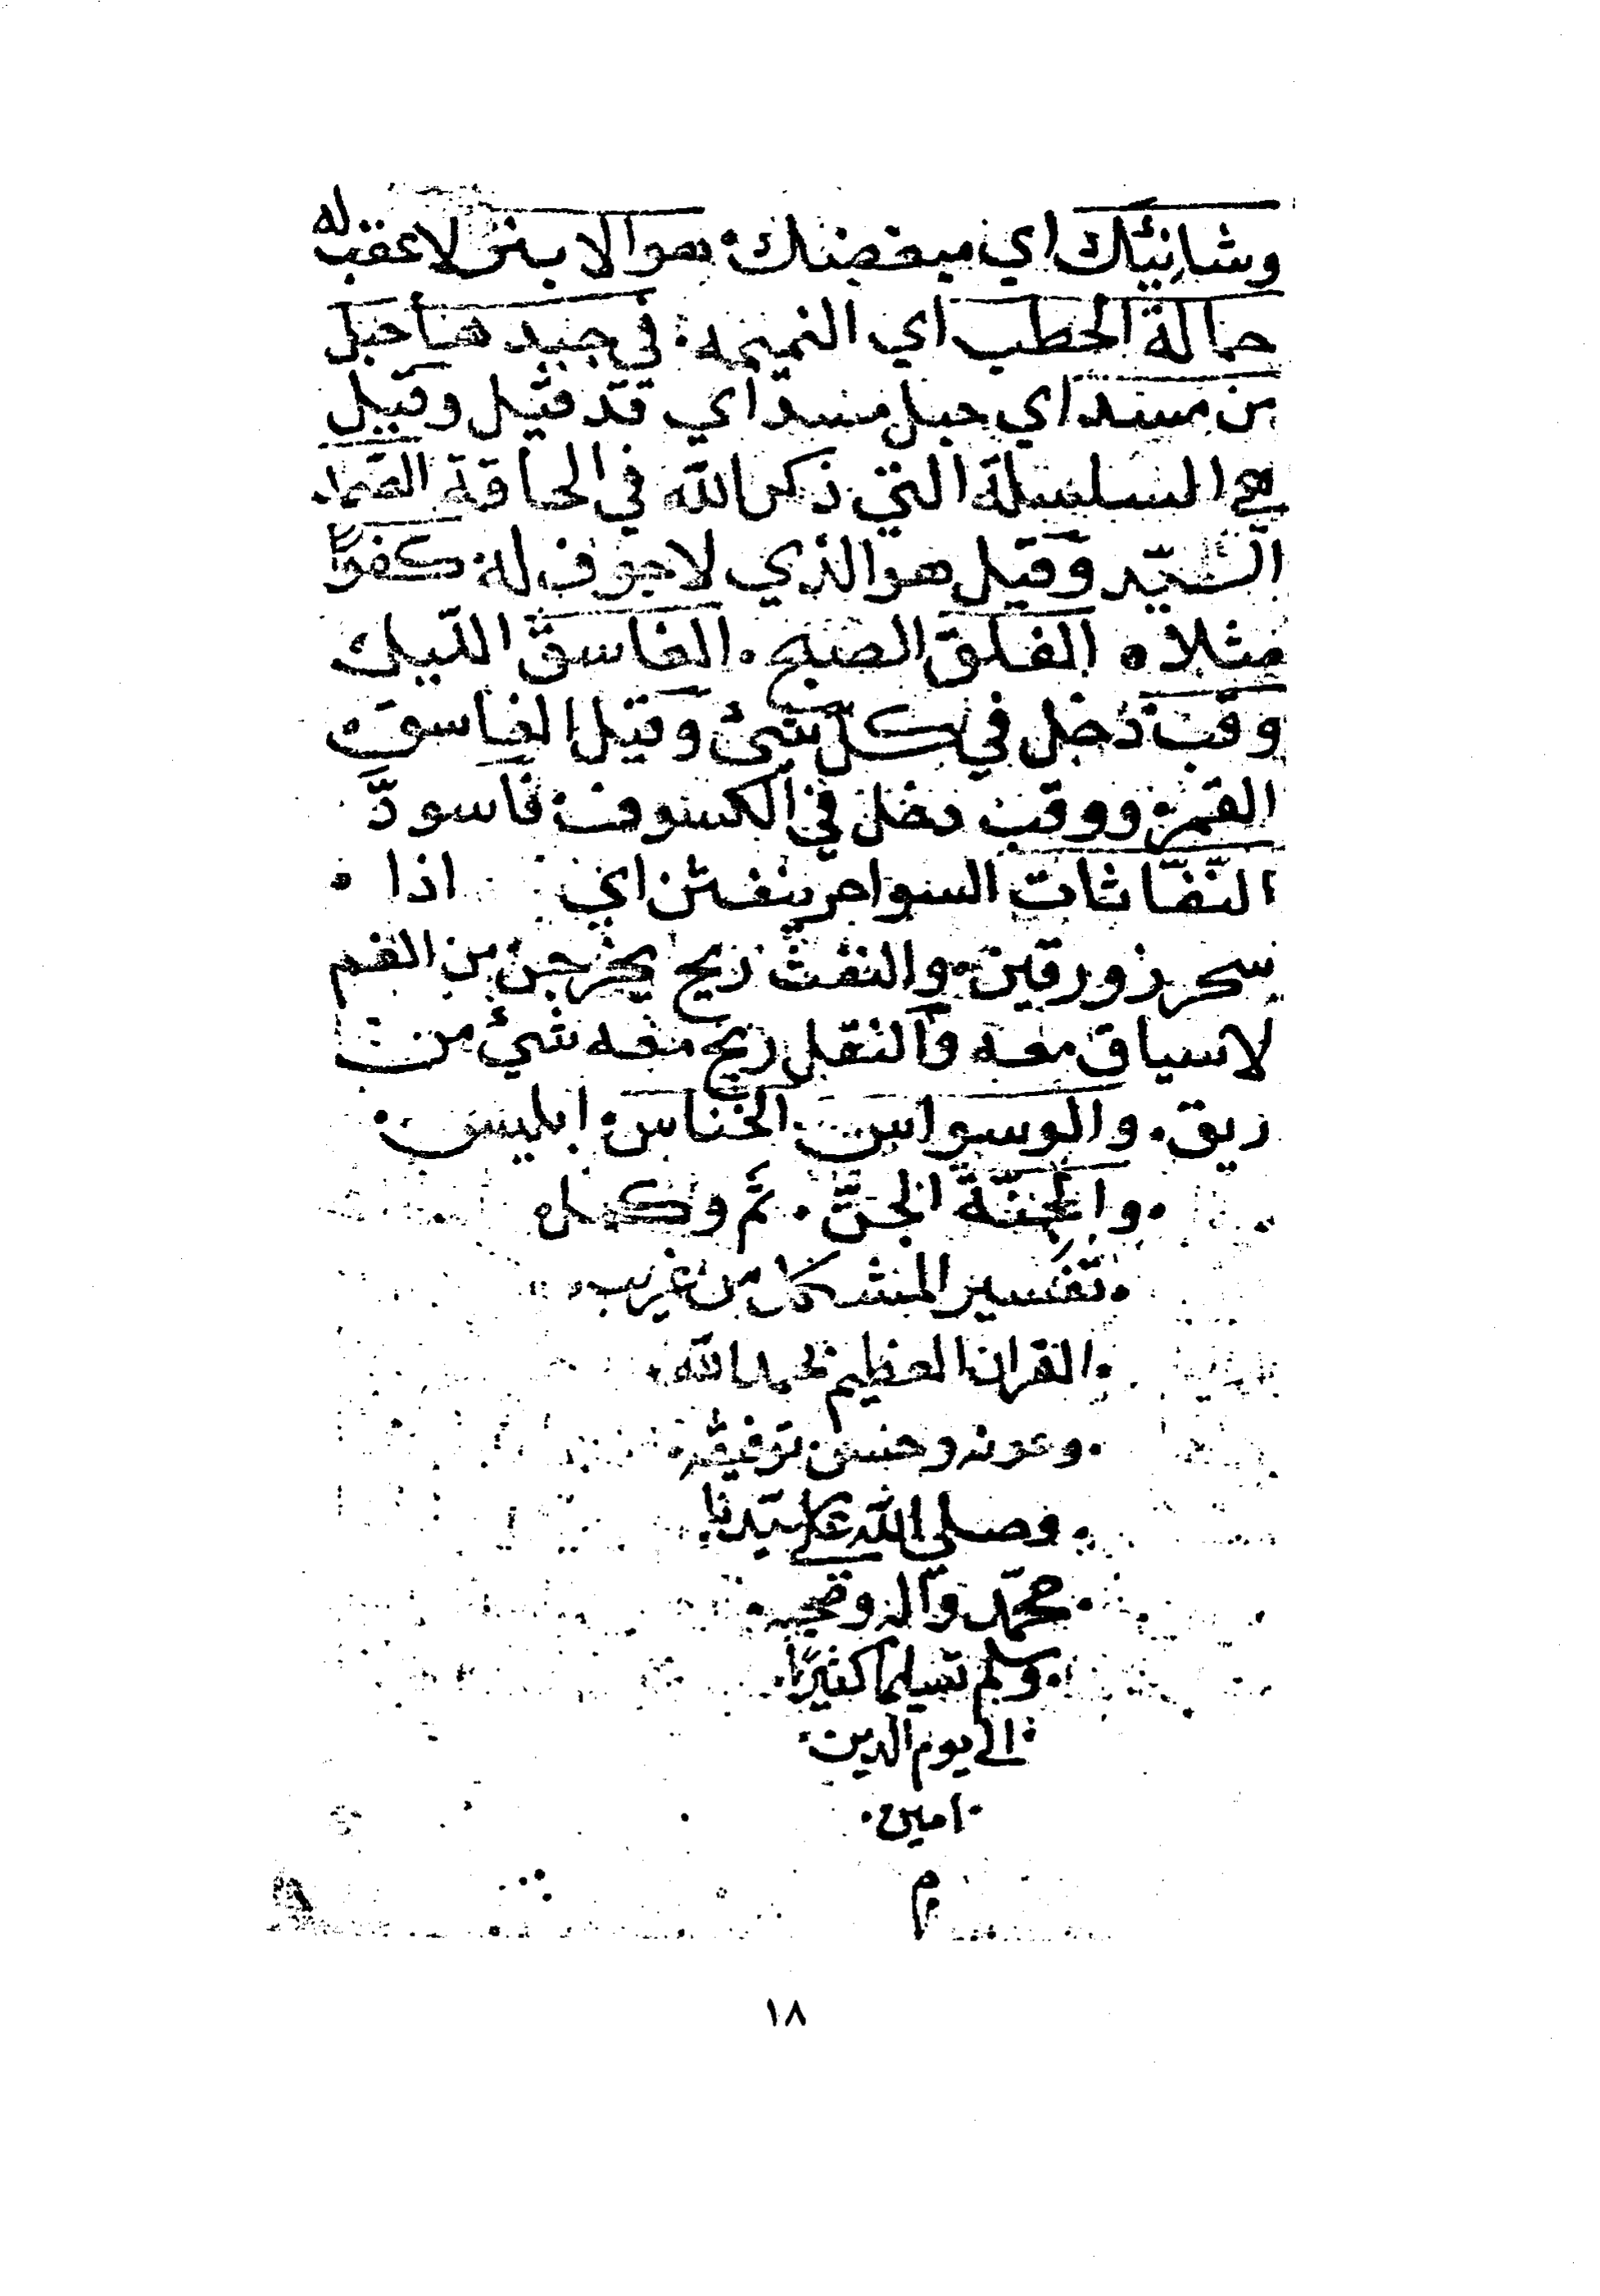 وشانِئَك اي مبغضك هو الابتر لا عقب له
حمالة الحطب اي النميمه في جيدها حبل
من مسد اي حبل مسد اي قد فتل وقيل
هي السلسلة التي ذكر الله في الحاقة الصمد
السّيّد وقيل هو الذي لا جوف له كفوًا
مثلا ٥ الفلق الصبح . الغاسق الليل
وقب دخل في كل شئ وقيل الغاسق
القمر ووقب دخل في الكسوف فاسودّ
النّفّاثات السواحر ينفثن اي اذا
سحرن ورقين والنفث ريح يخرجن من الفم
لا سياق معه والتفل ريح معه شيء من
ريق . والوسواس الخناس ابليس .
. والجِنّة الجنّ . تَم وكمل
. تفسير المشكل من غريب
. القران العظيم بحمد الله .
. وعونه وحسن توفيقه .
. وصلى الله على سيّدنا
. محمّد وآله وصحبه .
. وسلم تسليما كثيرًا .
الى يوم الدين
. امين .
م
١٨